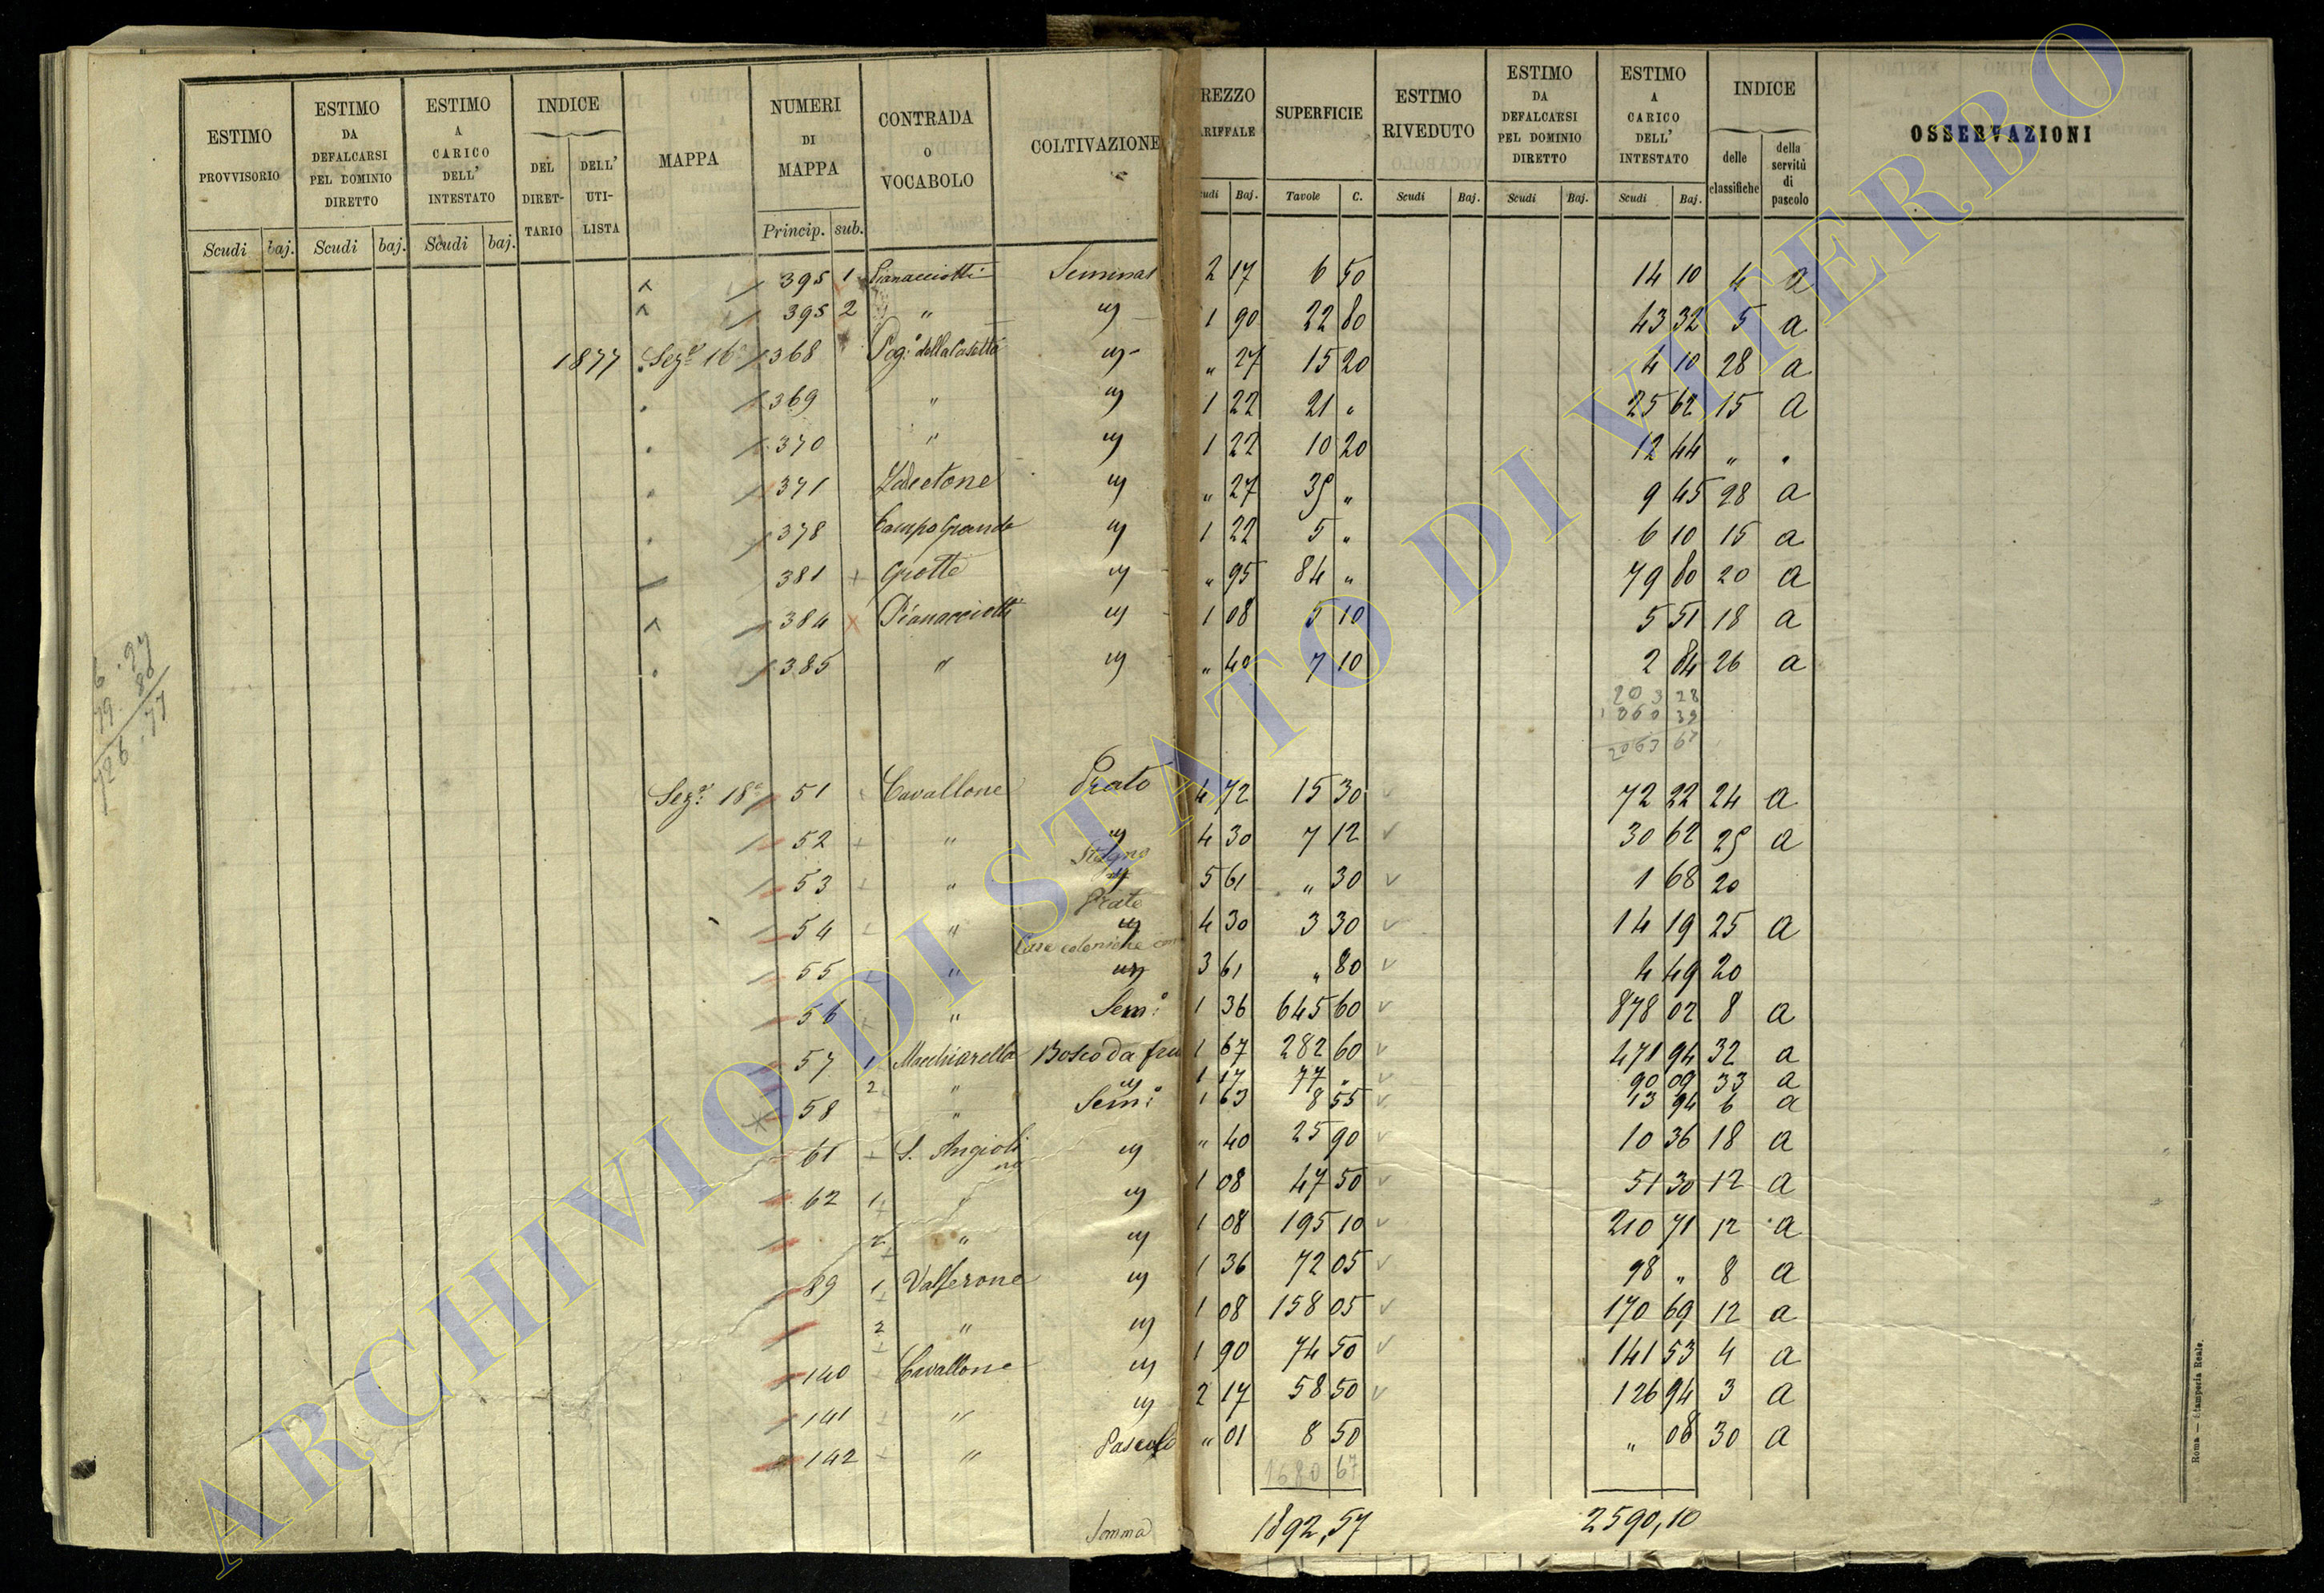 ESTIMO PROVVISORIO
ESTIMO DA DEFALCARSI PEL DOMINIO DIRETTO
ESTIMO A CARICO DELL' INTESTATO
INDICE
DEL DIRETTARIO
DELL' UTILISTA
MAPPA
NUMERI DI MAPPA
CONTRADA O VOCABOLO
COLTIVAZIONE
REZZO RIFFALE
SUPERFICIE
ESTIMO RIVEDUTO
ESTIMO DA DEFALCARSI PEL DOMINIO DIRETTO
ESTIMO A CARICO DELL' INTESTATO
INDICE
delle classifiche
della servitù di pascolo
OSSERVAZIONI
Scudi baj. Scudi baj. Scudi baj. Princip. sub. udi Baj. Tavole C. Scudi Baj. Scudi Baj. Scudi Baj.
395 1 Pianacciotti Seminat 2 17 6 50 14 10 4 a
395 2 " " 1 90 22 80 43 32 5 a
1877 Sez.e 16a 368 Pog.o della Casetta " " 27 15 20 4 10 28 a
369 " " 1 22 21 " 25 62 15 a
370 " " 1 22 10 20 12 44 " "
371 " " 27 35 " 9 45 28 a
378 Campo Grande " 1 22 5 " 6 10 15 a
381 Grotte " " 95 84 " 79 80 20 a
384 Pianacciotti " 1 08 5 10 5 51 18 a
385 " " " 40 7 10 2 84 26 a
203 28
1860 39
2063 67
Sez.e 18a 51 Cavallone Prato 4 72 15 30 72 22 24 a
52 " " 4 30 7 12 30 62 25 a
53 " Stagno 5 61 " 30 1 68 20
54 " Prato 4 30 3 30 14 19 25 a
55 " Case coloniche 3 61 " 80 4 49 20
56 " Sem.o 1 36 645 60 878 02 8 a
57 1 Macchiarella Bosco da fru 1 67 282 60 471 94 32 a
2 " " 1 17 77 " 90 09 33 a
58 " Sem.o 1 63 8 55 13 94 6 a
61 S. Angiolino " " 40 25 90 10 36 18 a
62 1 " " 1 08 47 50 51 30 12 a
2 " " 1 08 195 10 210 71 12 a
89 1 Valserone " 1 36 72 05 98 " 8 a
2 " " 1 08 158 05 170 69 12 a
140 Cavallone " 1 90 74 50 141 53 4 a
141 " " 2 17 58 50 126 94 3 a
142 " Pascolo " 01 8 50 " 08 30 a
1680 67
Somma 1892,57 2590,10
6.97
79.80
726.77
Roma — Stamperia Reale.
ARCHIVIO DI STATO DI VITERBO